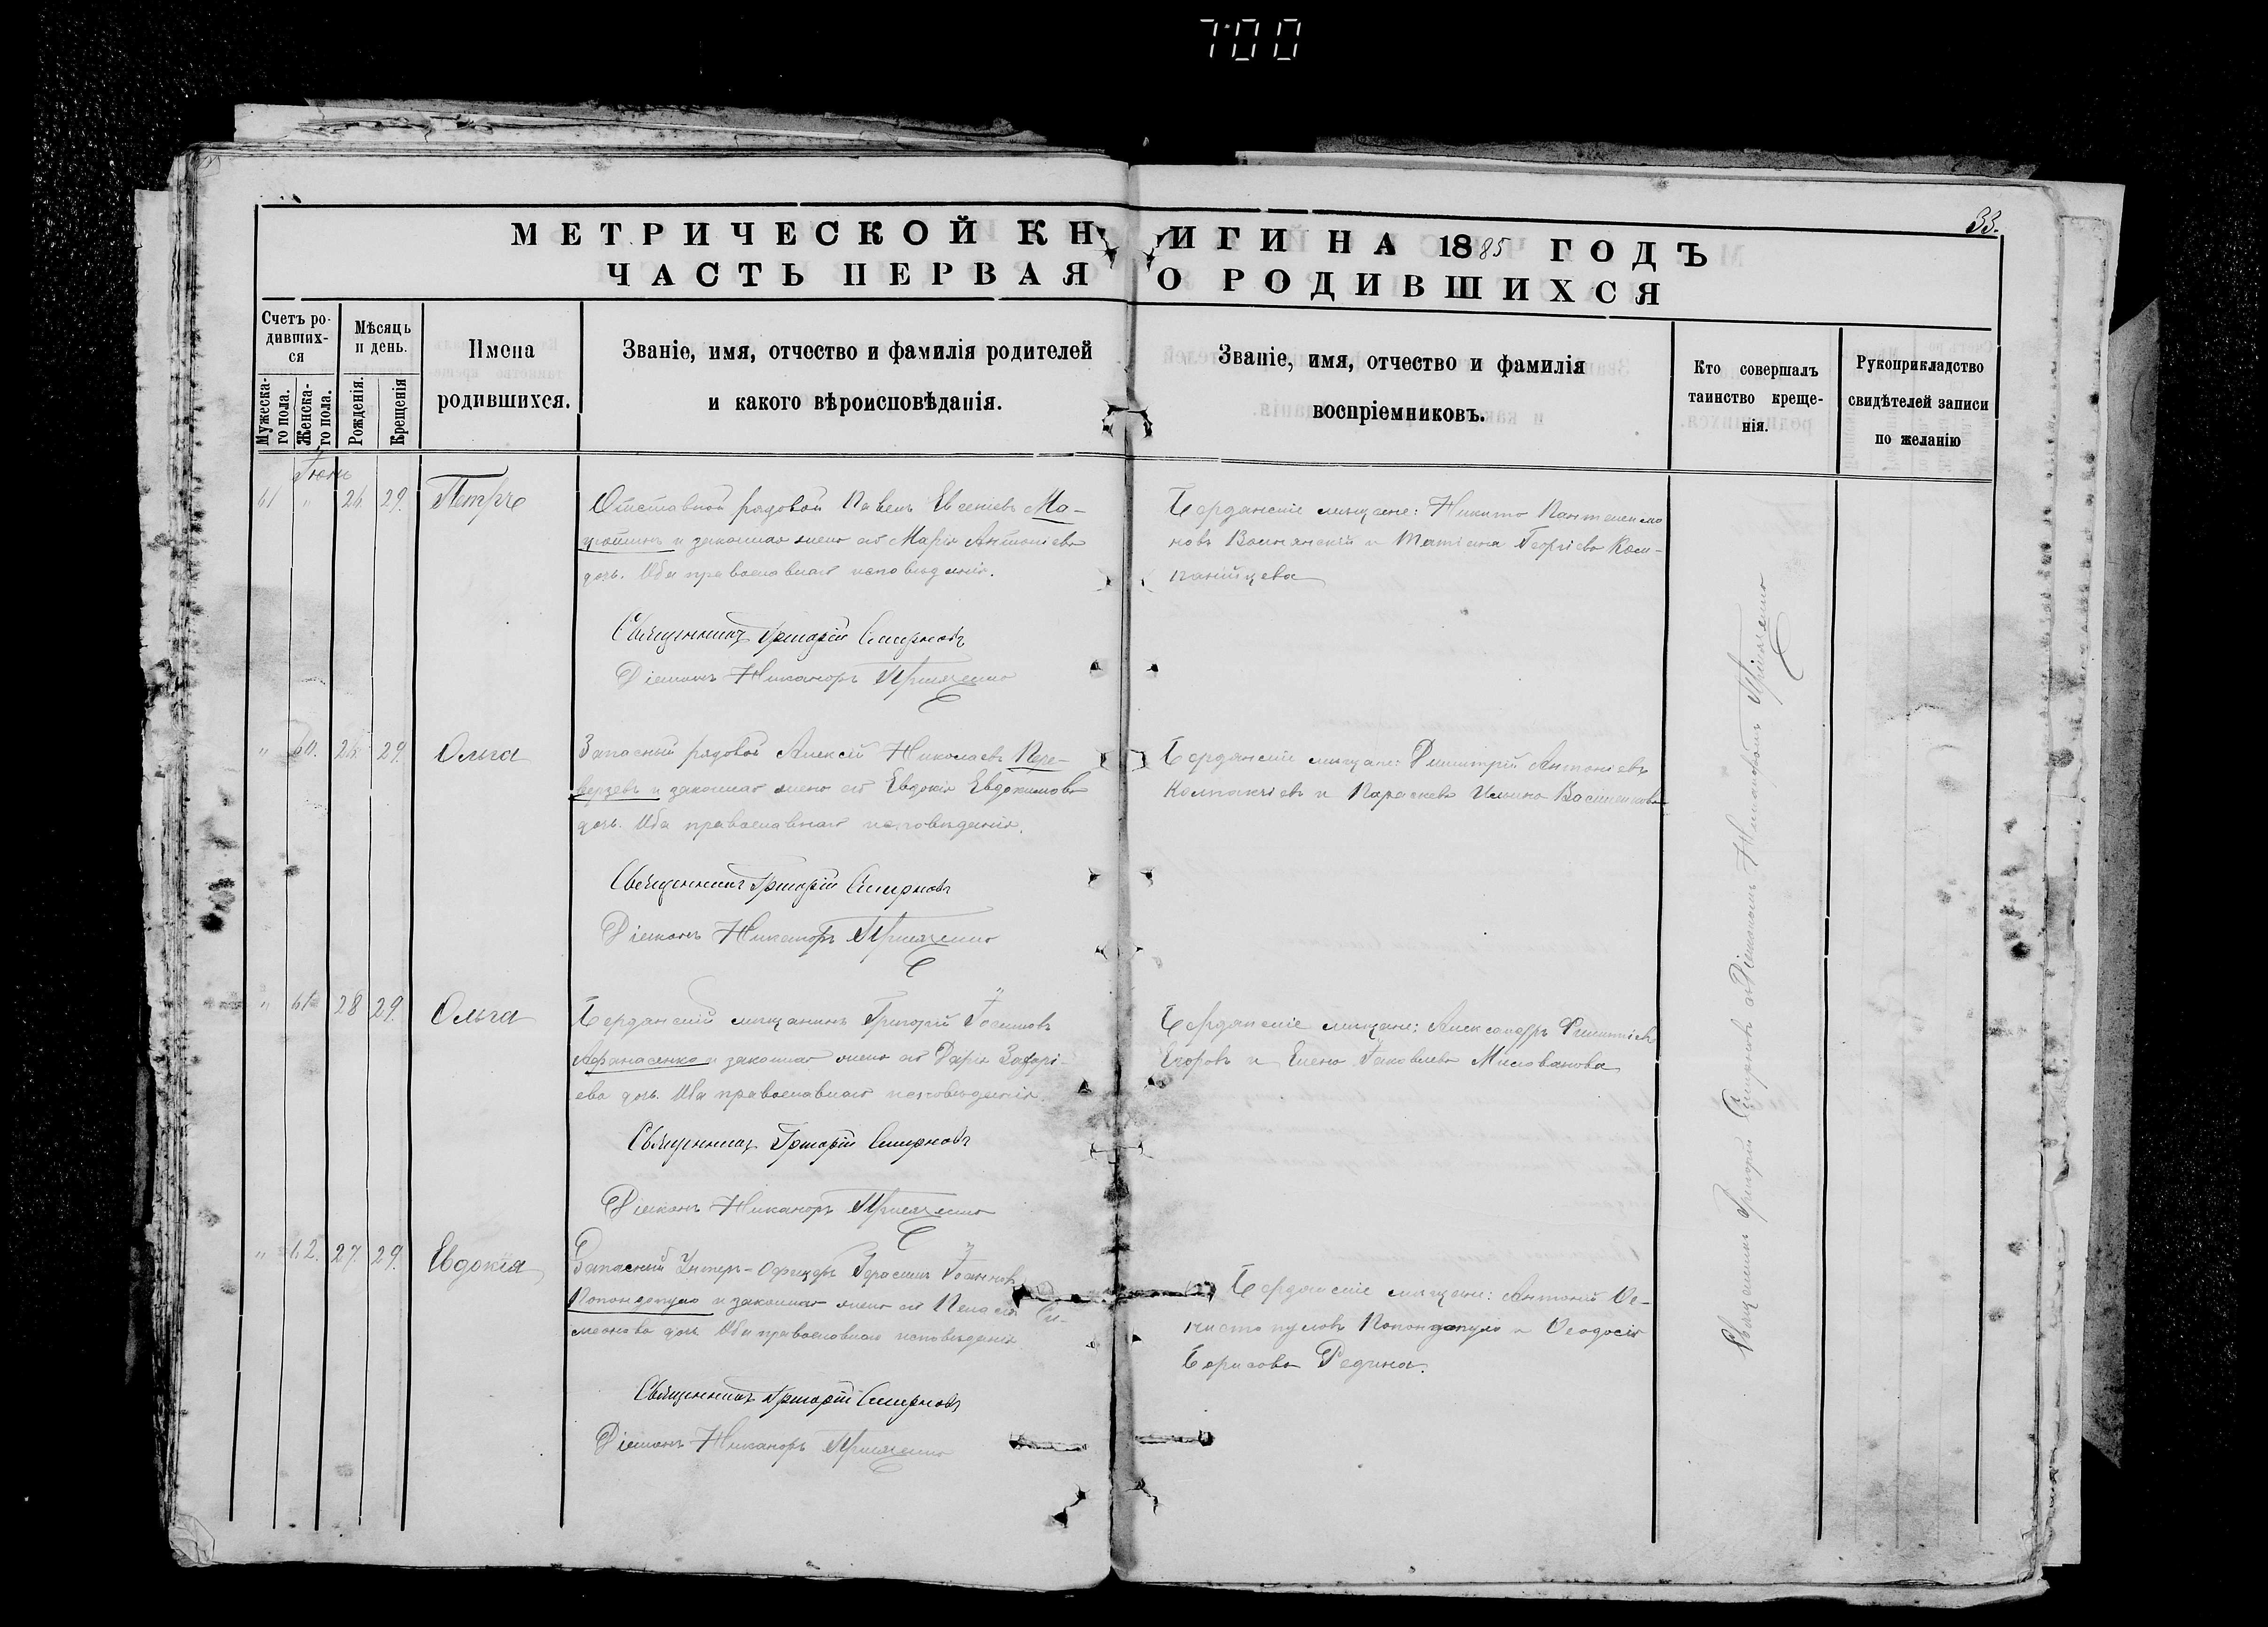 7:00
33.
МЕТРИЧЕСКОЙ КНИГИ НА 1885 ГОДЪ
ЧАСТЬ ПЕРВАЯ О РОДИВШИХСЯ
Счетъ ро-
дивших-
ся
Мужеска-
го пола.
Женска-
го пола.
Мѣсяць
и день.
Рожденія.
Крещенія
Имена
родившихся.
Званіе, имя, отчество и фамилія родителей
и какого вѣроисповѣданія.
Званіе, имя, отчество и фамилія
воспріемниковъ.
Кто совершалъ
таинство креще-
нія.
Рукоприкладство
свидѣтелей записи
по желанію
Іюнь
61 " 26. 29. Петръ
Отставной рядовой Павелъ Евсеніевъ Ма-
и законная жена его Марія Антоніева
дочь. Оба православнаго исповѣданія.
Священникъ Григорій Смирновъ
Діаконъ Никаноръ
Бердянскіе мѣщане: Никита Пантелеимо
новъ и Татіана Георгіева Ком-
панійцева
" 60. 26. 29. Ольга
Запасный рядовой Алексій Николаевъ Пере-
верзевъ и законная жена его Евдокія Евдокимова
дочь. Оба православнаго исповѣданія.
Священникъ Григорій Смирновъ
Діаконъ Никаноръ
Бердянскіе мѣщане: Димитрій Антоніевъ
Колпакчіевъ и Параскева Ильина Василенкова
" 61 28 29. Ольга
Бердянскій мѣщанинъ Григорій Іоанновъ
Афанасенко и законная жена его Дарія Захарі-
ева дочь. Оба православнаго исповѣданія.
Священникъ Григорій Смирновъ
Діаконъ Никаноръ
Бердянскіе мѣщане: Александръ
Егоровъ и Елена Іаковлева Милованова
" 62. 27. 29. Евдокія
Запасный Унтеръ-Офицеръ Герасимъ Іоанновъ
Папандопуло и законная жена его Пелагія Си-
меонова дочь Оба православнаго исповѣданія
Священникъ Григорій Смирновъ
Діаконъ Никаноръ
Бердянскіе мѣщане: Антоній
Папандопуло и Ѳеодосія
Борисова Редина.
Священникъ Григорій Смирновъ съ Діакономъ Никаноромъ